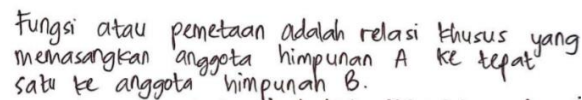 Fungsi atau pemetaan adalah relasi khusus yang
memasangkan anggota himpunan A ke tepat
satu ke anggota himpunan B.